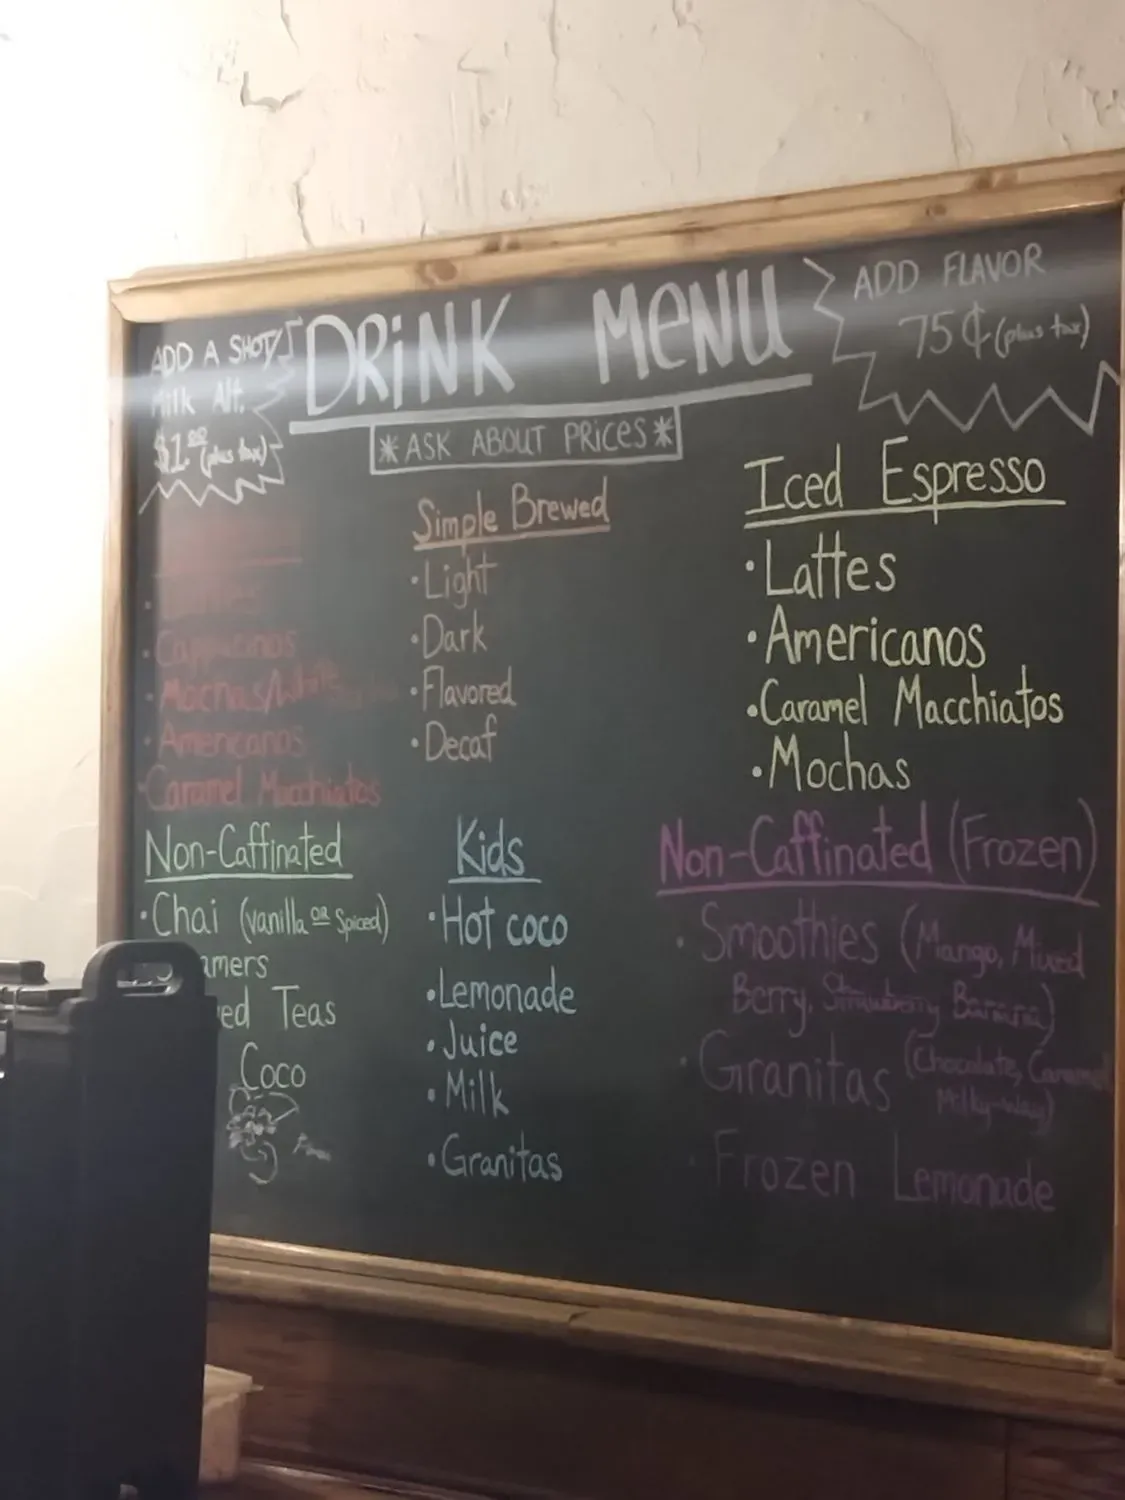 ADD A SHOT/
Milk Alt.
$1.00 (plus tax)
DRiNK MeNU
*ASK ABOUT PRiCeS*
ADD FLAVOR
75¢ (plus tax)
• Cappucinos
• Mochas/White
• Americanos
• Caramel Macchiatos
Simple Brewed
• Light
• Dark
• Flavored
• Decaf
Iced Espresso
• Lattes
• Americanos
• Caramel Macchiatos
• Mochas
Non-Caffinated
• Chai (vanilla OR Spiced)
amers
ed Teas
Coco
Kids
• Hot coco
• Lemonade
• Juice
• Milk
• Granitas
Non-Caffinated (Frozen)
• Smoothies (Mango, Mixed
Berry, Strawberry Banana)
• Granitas (Chocolate, Caramel
Milky-way)
• Frozen Lemonade